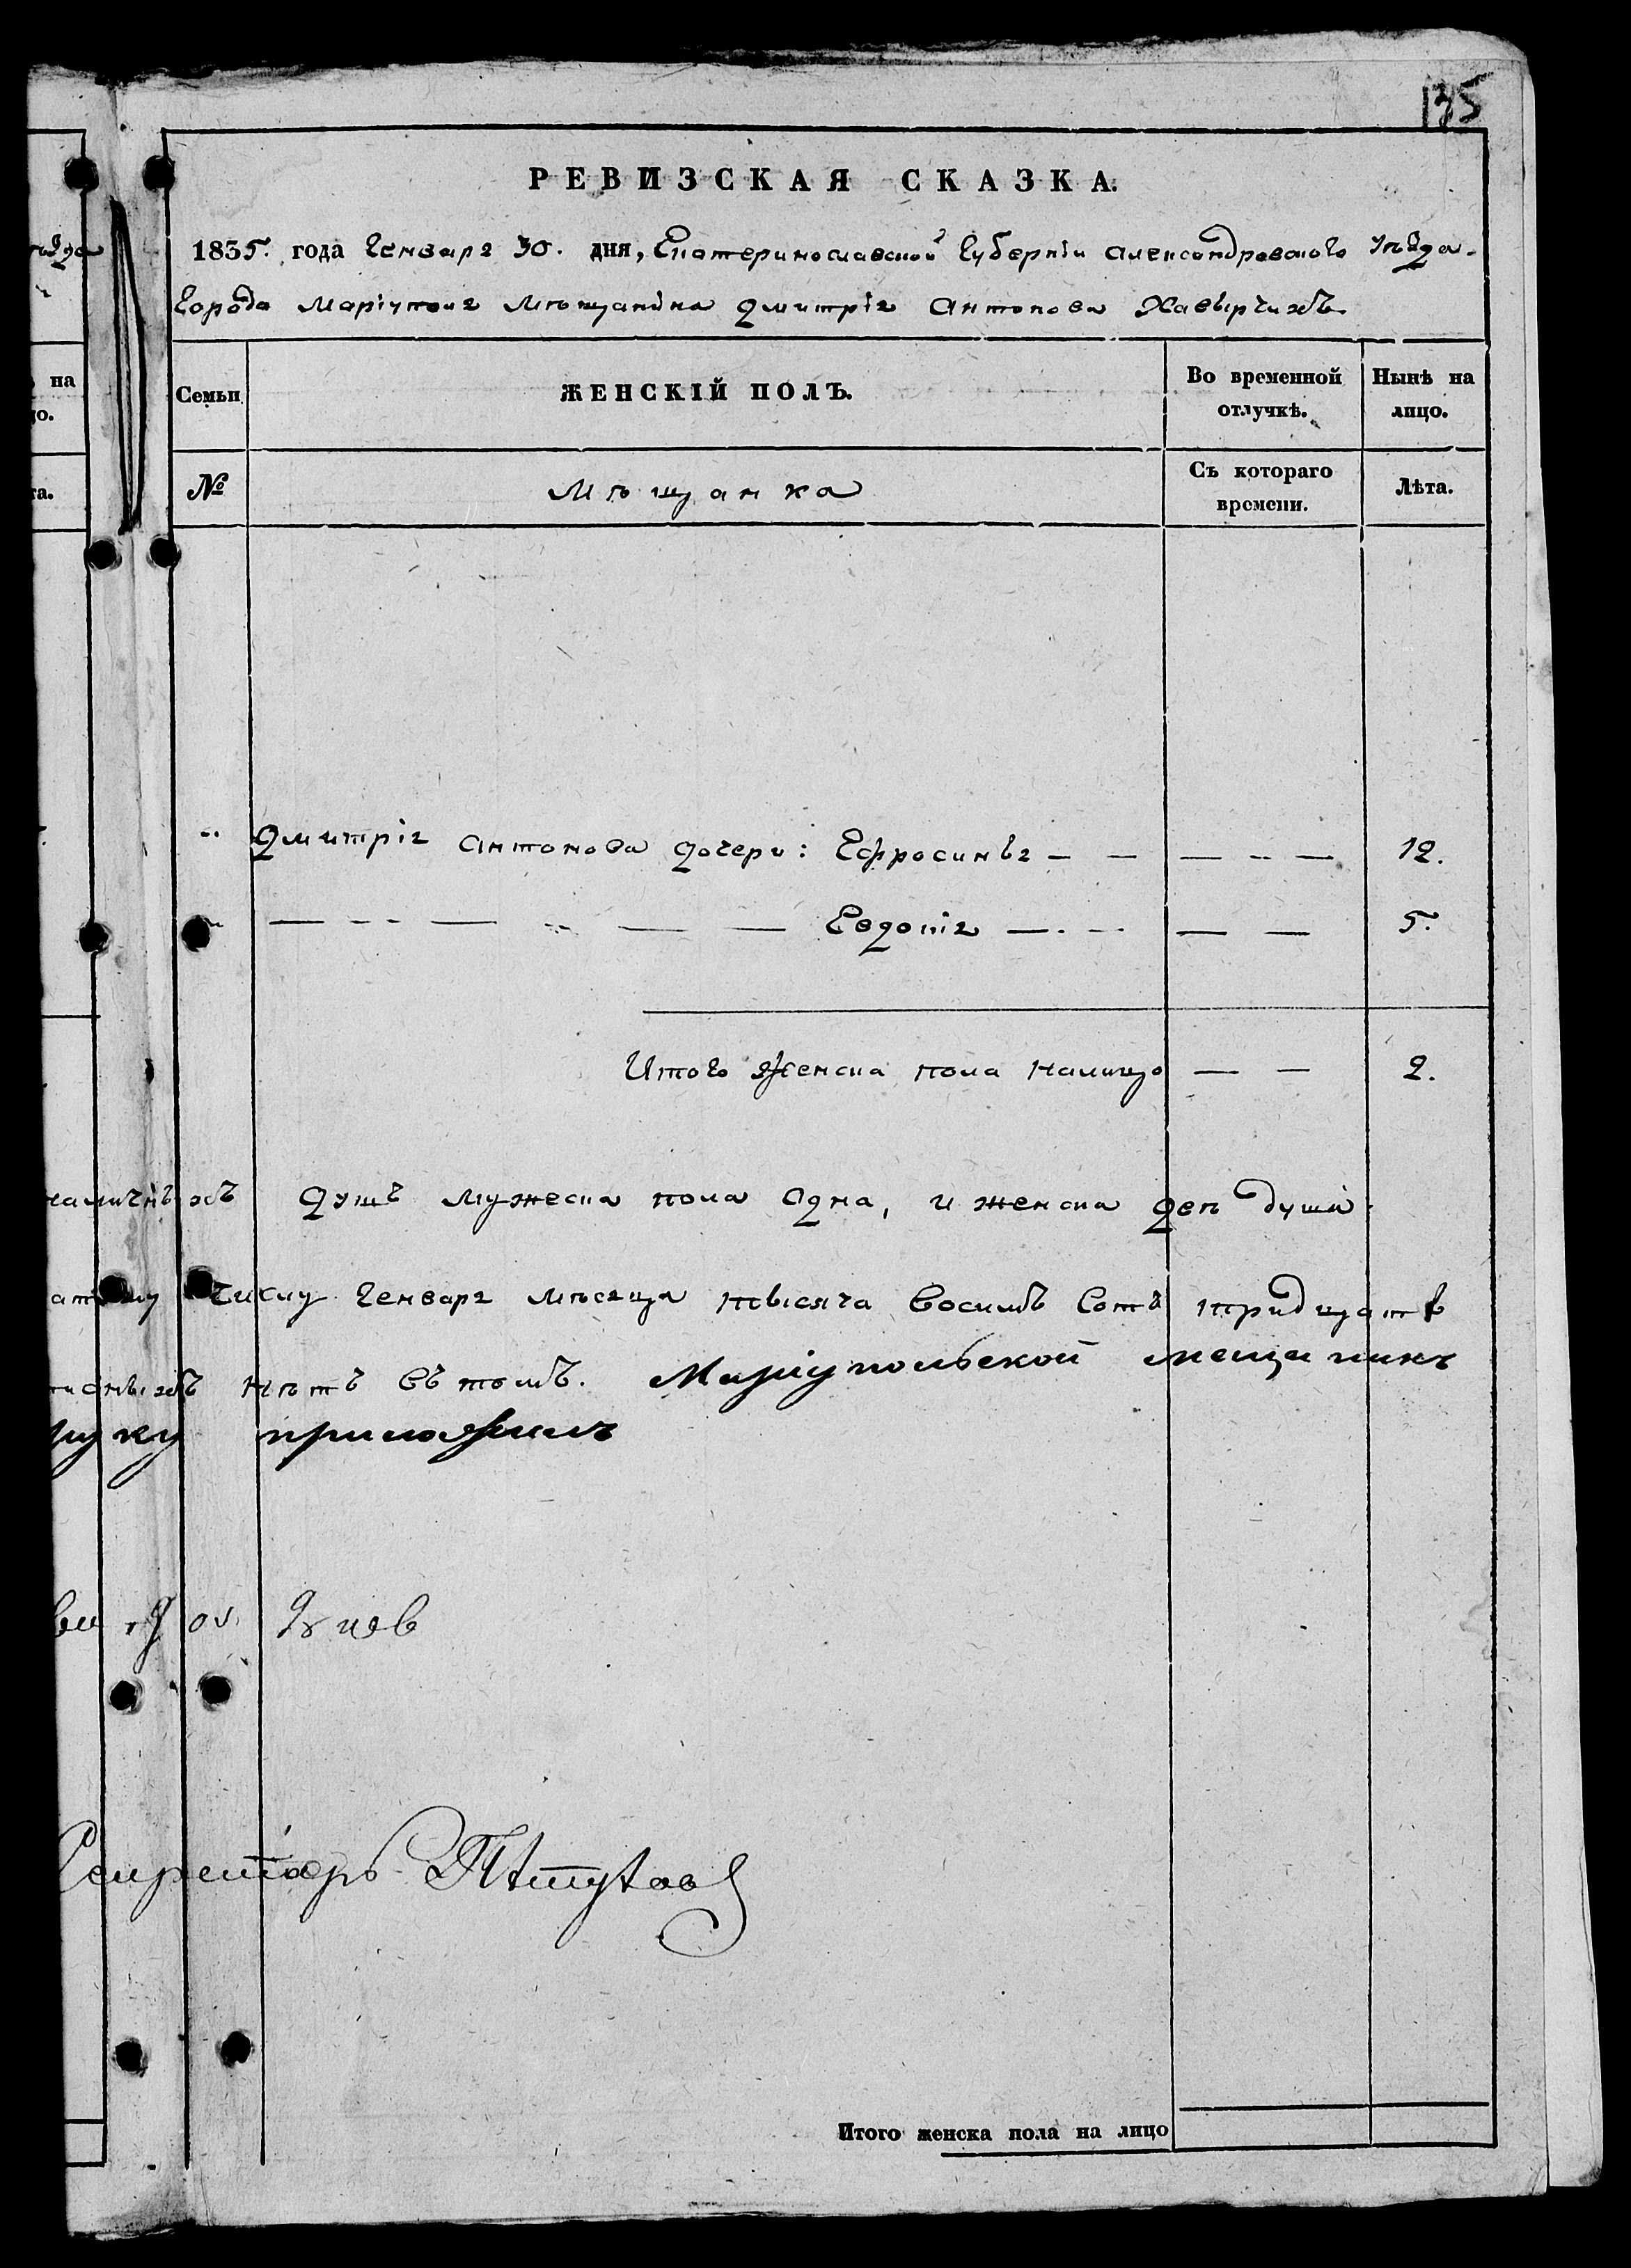 135
РЕВИЗСКАЯ СКАЗКА.
1835. года Генваря 30. дня, Екатеринославской Губерніи Александровскаго уѣзда.
Города Маріуполя Мѣщанина Дмитрія Антонова
Семьи
ЖЕНСКІЙ ПОЛЪ.
Во временной отлучкѣ.
Нынѣ на лицо.
№
Мѣщанка
Съ котораго времени.
Лѣта.
Дмитрія Антонова дочери: Ефросинья — — — — — 12.
— — — — — — Евдокія — — — — 5.
Итого Женска пола налицо — — 2.
душъ мужеска пола одна, и женска двѣ души.
числу Генваря мѣсяца тысяча восимъ сотъ тридцать
нѣтъ въ томъ. Мариупольской мещанинъ
руку приложилъ
Секретарь
Итого женска пола на лицо